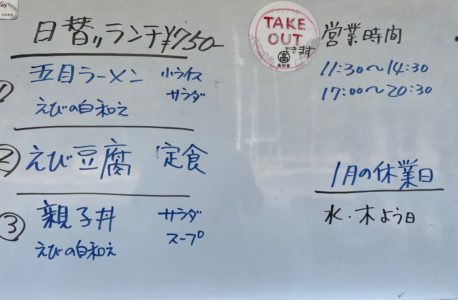 日替りランチ¥750-
① 五目ラーメン 小ライス
えびの白和え サラダ
② えび豆腐 定食
③ 親子丼 サラダ
えびの白和え スープ
TAKE
OUT
できます
営業時間
11:30〜14:30
17:00〜20:30
1月の休業日
水・木よう日